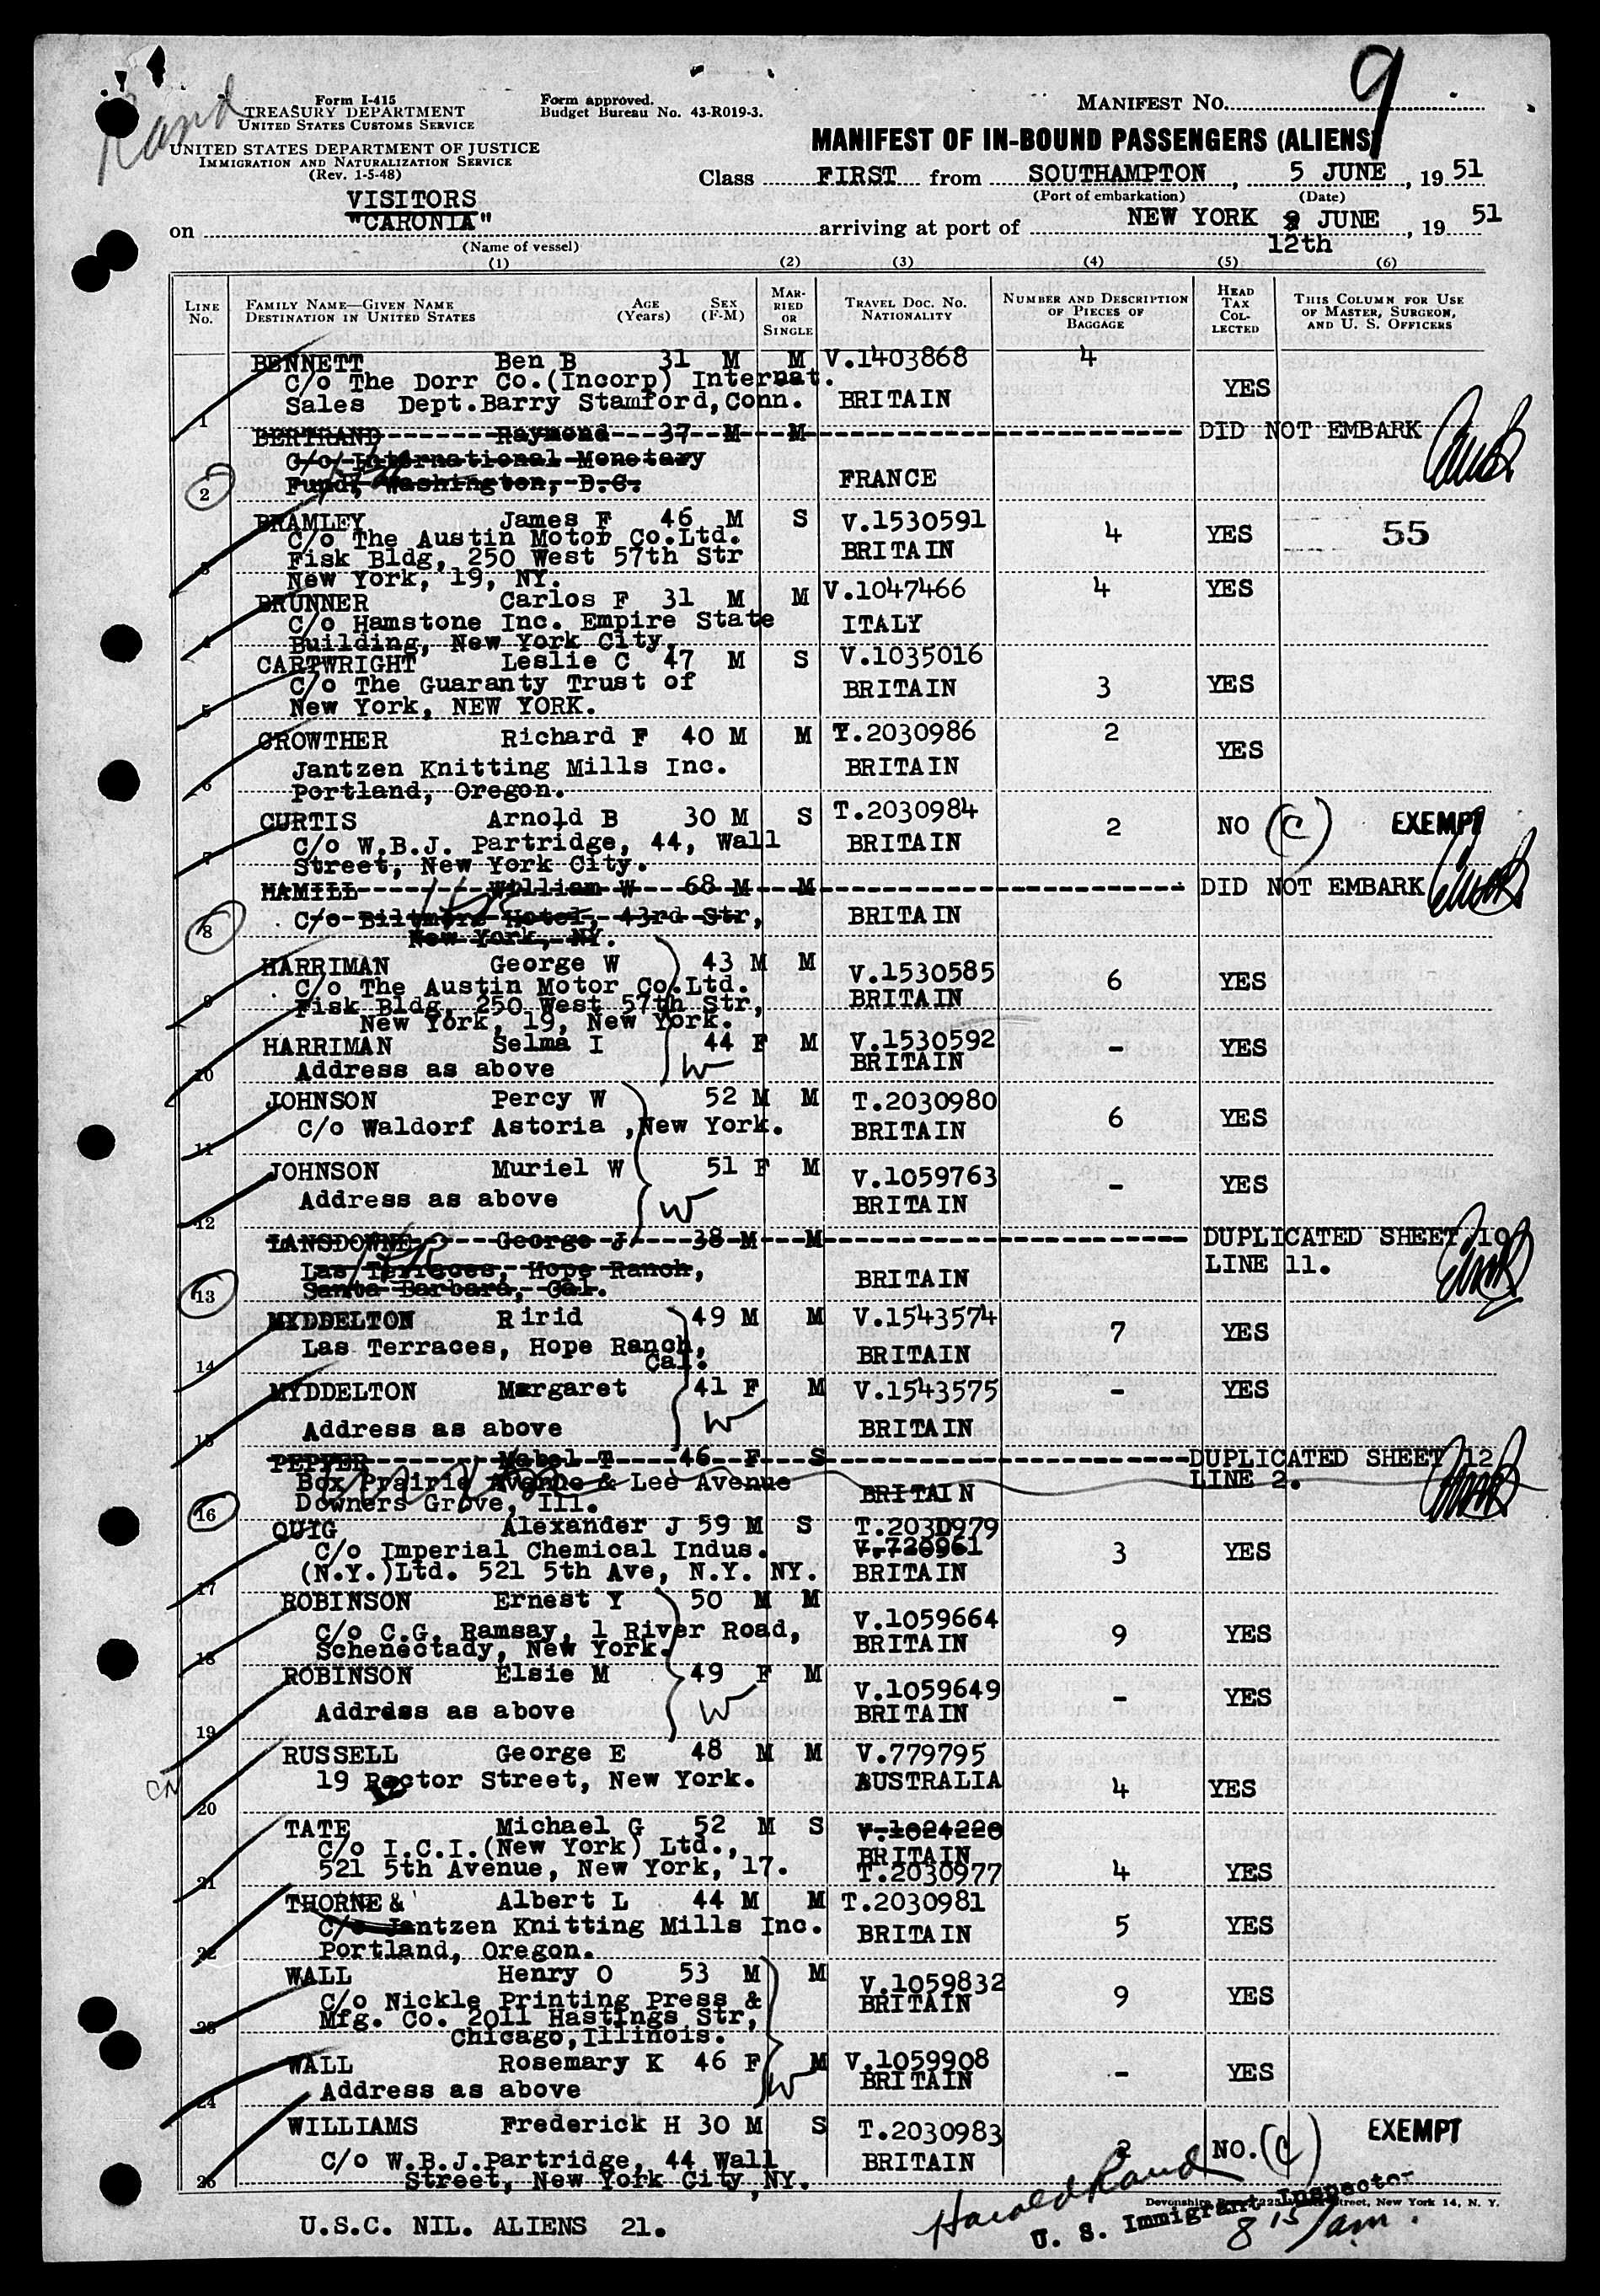 Rand
9
Form I-415
TREASURY DEPARTMENT
UNITED STATES CUSTOMS SERVICE
UNITED STATES DEPARTMENT OF JUSTICE
IMMIGRATION AND NATURALIZATION SERVICE
(Rev. 1-5-48)
Form approved.
Budget Bureau No. 43-R019-3.
MANIFEST NO.
MANIFEST OF IN-BOUND PASSENGERS (ALIENS)
Class FIRST from SOUTHAMPTON, 5 JUNE, 19 51
(Port of embarkation) (Date)
VISITORS
on "CARONIA" arriving at port of NEW YORK 9 JUNE, 19 51
(Name of vessel) 12th
(1) (2) (3) (4) (5) (6)
LINE NO. FAMILY NAME—GIVEN NAME DESTINATION IN UNITED STATES AGE (Years) SEX (F-M) MARRIED OR SINGLE TRAVEL DOC. NO. NATIONALITY NUMBER AND DESCRIPTION OF PIECES OF BAGGAGE HEAD TAX COLLECTED THIS COLUMN FOR USE OF MASTER, SURGEON, AND U. S. OFFICERS
BENNETT Ben B 31 M M V.1403868 4
C/o The Dorr Co.(Incorp) Internat. YES
Sales Dept.Barry Stamford,Conn. BRITAIN
1
BERTRAND Raymond 37 M M DID NOT EMBARK
C/o International Monetary
Fund, Washington, D.C. FRANCE
2
BRAMLEY James F 46 M S V.1530591 4 YES 55
C/o The Austin Motor Co.Ltd.
Fisk Bldg, 250 West 57th Str BRITAIN
3
New York, 19, NY.
BRUNNER Carlos F 31 M M V.1047466 4 YES
C/o Hamstone Inc. Empire State ITALY
4 Building, New York City,
CARTWRIGHT Leslie C 47 M S V.1035016
C/o The Guaranty Trust of BRITAIN 3 YES
5 New York, NEW YORK.
CROWTHER Richard F 40 M M T.2030986 2
YES
Jantzen Knitting Mills Inc. BRITAIN
6 Portland, Oregon.
CURTIS Arnold B 30 M S T.2030984 2 NO (C) EXEMPT
C/o W.B.J. Partridge, 44, Wall BRITAIN
7 Street, New York City.
HAMILL William W 68 M M DID NOT EMBARK
C/o Biltmore Hotel, 43rd Str, BRITAIN
8 New York, NY.
HARRIMAN George W 43 M M V.1530585 6 YES
C/o The Austin Motor Co.Ltd.
9 Fisk Bldg, 250 West 57th Str, BRITAIN
New York, 19, New York.
HARRIMAN Selma I 44 F M V.1530592 - YES
10 Address as above W BRITAIN
JOHNSON Percy W 52 M M T.2030980 6 YES
C/o Waldorf Astoria ,New York. BRITAIN
11
JOHNSON Muriel W 51 F M V.1059763 - YES
Address as above W BRITAIN
12
LANSDOWNE George J 38 M M DUPLICATED SHEET 10
Las Terraces, Hope Ranch, LINE 11.
13 Santa Barbara, Cal. BRITAIN
MYDDELTON Ririd 49 M M V.1543574 7 YES
Las Terraces, Hope Ranch, BRITAIN
14 Cal.
MYDDELTON Margaret 41 F M V.1543575 - YES
Address as above W BRITAIN
15
PEPPER Mabel T 46 F S DUPLICATED SHEET 12
Box Prairie Avenue & Lee Avenue BRITAIN LINE 2.
16 Downers Grove, Ill.
QUIG Alexander J 59 M S T.2030979
C/o Imperial Chemical Indus. V.720961 3 YES
17 (N.Y.)Ltd. 521 5th Ave, N.Y. NY. BRITAIN
ROBINSON Ernest Y 50 M M V.1059664 9 YES
C/o C.G. Ramsay, 1 River Road,
18 Schenectady, New York. BRITAIN
ROBINSON Elsie M 49 F M V.1059649 - YES
Address as above W BRITAIN
19
RUSSELL George E 48 M M V.779795
19 Rector Street, New York. AUSTRALIA 4 YES
CN
20
TATE Michael G 52 M S V.1024220
C/o I.C.I.(New York) Ltd., BRITAIN
21 521 5th Avenue, New York, 17. T.2030977 4 YES
THORNE & Albert L 44 M M T.2030981
C/o Jantzen Knitting Mills Inc. BRITAIN 5 YES
22 Portland, Oregon.
WALL Henry O 53 M M V.1059832
C/o Nickle Printing Press & BRITAIN 9 YES
23 Mfg. Co. 2011 Hastings Str,
Chicago,Illinois.
WALL Rosemary K 46 F M V.1059908 - YES
24 Address as above W BRITAIN
WILLIAMS Frederick H 30 M S T.2030983 2 NO. (C) EXEMPT
C/o W.B.J.Partridge, 44 Wall BRITAIN
25 Street, New York City,NY.
Harold Rand
U. S. Immigrant Inspector
Street, New York 14, N. Y.
U.S.C. NIL. ALIENS 21.
8 15 am.